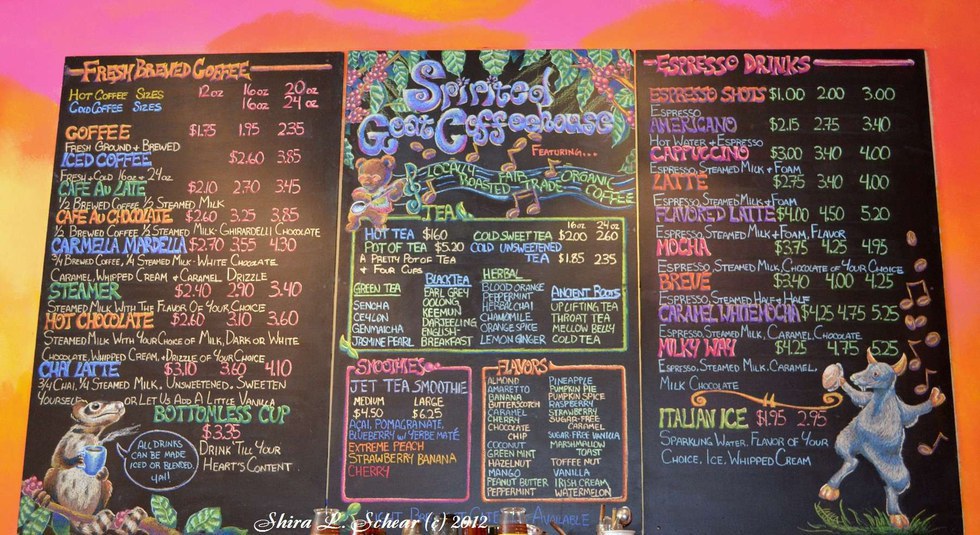 FRESH BREWED COFFEE
HOT COFFEE SIZES 12 oz 16 oz 20 oz
COLD COFFEE SIZES 16 oz 24 oz
COFFEE $1.75 1.95 2.35
FRESH GROUND & BREWED
ICED COFFEE $2.60 3.85
FRESH & COLD 16oz & 24oz
CAFÉ AU LATE $2.10 2.70 3.45
1/2 BREWED COFFEE 1/2 STEAMED MILK
CAFE AU CHOCOLATE $2.60 3.25 3.85
1/2 BREWED COFFEE 1/2 STEAMED MILK - GHIRARDELLI CHOCOLATE
CARMELLA MARDELLA $2.70 3.55 4.30
3/4 BREWED COFFEE, 1/4 STEAMED MILK - WHITE CHOCOLATE
CARAMEL, WHIPPED CREAM & CARAMEL DRIZZLE
STEAMER $2.40 2.90 3.40
STEAMED MILK WITH THE FLAVOR OF YOUR CHOICE
HOT CHOCOLATE $2.60 3.10 3.60
STEAMED MILK WITH YOUR CHOICE OF MILK, DARK OR WHITE
CHOCOLATE, WHIPPED CREAM, & DRIZZLE OF YOUR CHOICE
CHAI LATTE $3.10 3.60 4.10
3/4 CHAI, 1/4 STEAMED MILK, UNSWEETENED, SWEETEN
YOURSELF OR LET US ADD A LITTLE VANILLA
BOTTOMLESS CUP
$3.35
DRINK 'TILL YOUR
HEART'S CONTENT
ALL DRINKS
CAN BE MADE
ICED OR BLENDED,
YAY!
Spirited
Goat Coffeehouse
FEATURING...
LOCALLY ROASTED FAIR TRADE ORGANIC COFFEE
TEA
16oz 24oz
HOT TEA $1.60 COLD SWEET TEA $2.00 2.60
POT OF TEA $5.20 COLD UNSWEETENED
A PRETTY POT OF TEA TEA $1.85 2.35
& FOUR CUPS
GREEN TEA
SENCHA
CEYLON
GENMAICHA
JASMINE PEARL
BLACK TEA
EARL GREY
OOLONG
KEEMUN
DARJEELING
ENGLISH
BREAKFAST
HERBAL
BLOOD ORANGE
PEPPERMINT
HERBAL CHAI
CHAMOMILE
ORANGE SPICE
LEMON GINGER
ANCIENT ROOTS
UPLIFTING TEA
THROAT TEA
MELLOW BELLY
COLD TEA
SMOOTHIES
JET TEA SMOOTHIE
MEDIUM LARGE
$4.50 $6.25
AÇAI, POMAGRANATE,
BLUEBERRY W/ YERBE MATÉ
EXTREME PEACH
STRAWBERRY BANANA
CHERRY
FLAVORS
ALMOND
AMARETTO
BANANA
BUTTERSCOTCH
CARAMEL
CHERRY
CHOCOLATE
CHIP
COCONUT
GREEN MINT
HAZELNUT
MANGO
PEANUT BUTTER
PEPPERMINT
PINEAPPLE
PUMPKIN PIE
PUMPKIN SPICE
RASPBERRY
STRAWBERRY
SUGAR-FREE
CARAMEL
SUGAR-FREE VANILLA
MARSHMALLOW
TOAST
TOFFEE NUT
VANILLA
IRISH CREAM
WATERMELON
AVAILABLE
ESPRESSO DRINKS
ESPRESSO SHOTS $1.00 2.00 3.00
ESPRESSO
AMERICANO $2.15 2.75 3.40
HOT WATER & ESPRESSO
CAPPUCCINO $3.00 3.40 4.00
ESPRESSO, STEAMED MILK & FOAM
LATTE $2.75 3.40 4.00
ESPRESSO, STEAMED MILK & FOAM
FLAVORED LATTE $4.00 4.50 5.20
ESPRESSO, STEAMED MILK & FOAM, FLAVOR
MOCHA $3.75 4.25 4.95
ESPRESSO, STEAMED MILK, CHOCOLATE OF YOUR CHOICE
BREVE $3.40 4.00 4.25
ESPRESSO, STEAMED HALF & HALF
CARAMEL WHITE MOCHA $4.25 4.75 5.25
ESPRESSO, STEAMED MILK, CARAMEL, CHOCOLATE
MILKY WAY $4.25 4.75 5.25
ESPRESSO, STEAMED MILK, CARAMEL,
MILK CHOCOLATE
ITALIAN ICE $1.95 2.95
SPARKLING WATER, FLAVOR OF YOUR
CHOICE, ICE, WHIPPED CREAM
Shira L. Schear (c) 2012